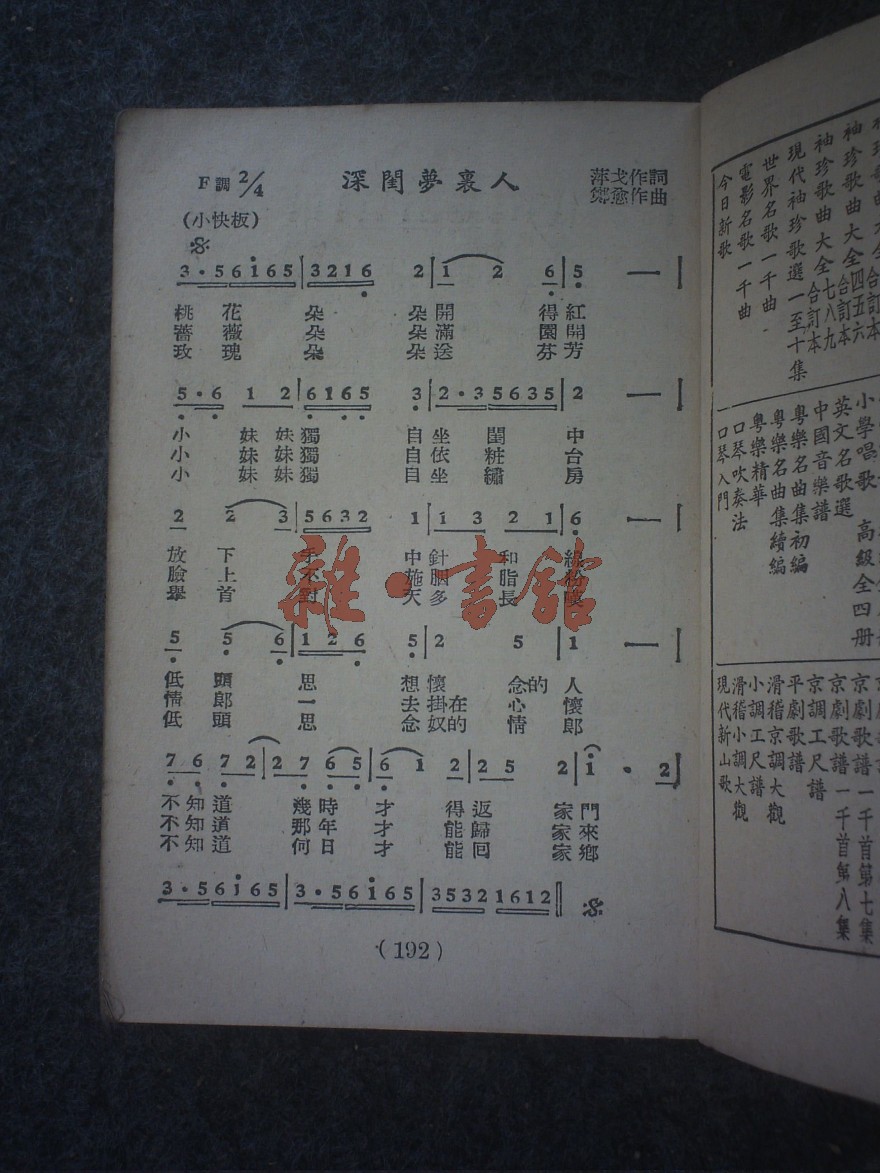 深閨夢裏人
F調 2/4
萍戈作詞
鄭愈作曲
(小快板)
3·56i65|3216 2|1 2 6|5 —|
桃花朵朵開得紅
薔薇朵朵滿園開
玫瑰朵朵送芬芳
5·6 1 2|6165 3|2·35635|2 —|
小妹妹獨自坐閨中
小妹妹獨自依粧台
小妹妹獨自坐繡房
2 2 3|5632 1|1 3 2 1|6 —|
放下手中針和線
臉上不施胭脂粉
舉首對天多長嘆
5 5 6|1 2 6 5|2 5|1 —|
低頭思想懷念的人
情郎一去掛在心懷
低頭思念奴的情郎
7 6 7 2|2 7 6 5|6 1 2|2 5 2|i · 2|
不知道幾時才得返家門
不知道那年才能歸家來
不知道何日才能回家鄉
3·56i65|3·56i65|3532 1612‖
(192)
袖珍歌曲大全四五六合訂本
袖珍歌曲大全七八九合訂本
現代袖珍歌選一至十集
世界名歌一千曲
電影名歌一千曲
今日新歌
小學唱歌 高級全四册
英文名歌選
中國音樂譜
粵樂名曲集初編
粵樂名曲集續編
粵樂精華
口琴吹奏法
口琴入門
京劇歌譜一千首第七集
京劇歌譜一千首第八集
京調工尺譜
平劇歌譜
滑稽京調大觀
小調工尺譜
滑稽小調大觀
現代新山歌
雜·書館